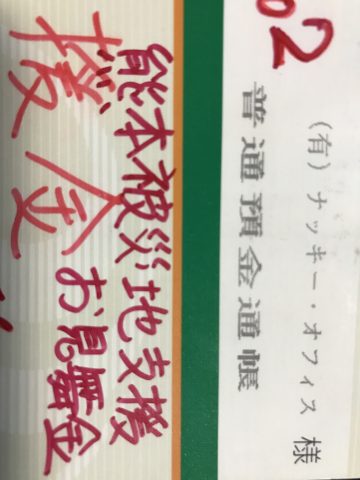 02
(有) ナッキー・オフィス 様
普通預金通帳
熊本被災地支援
お見舞金
援金